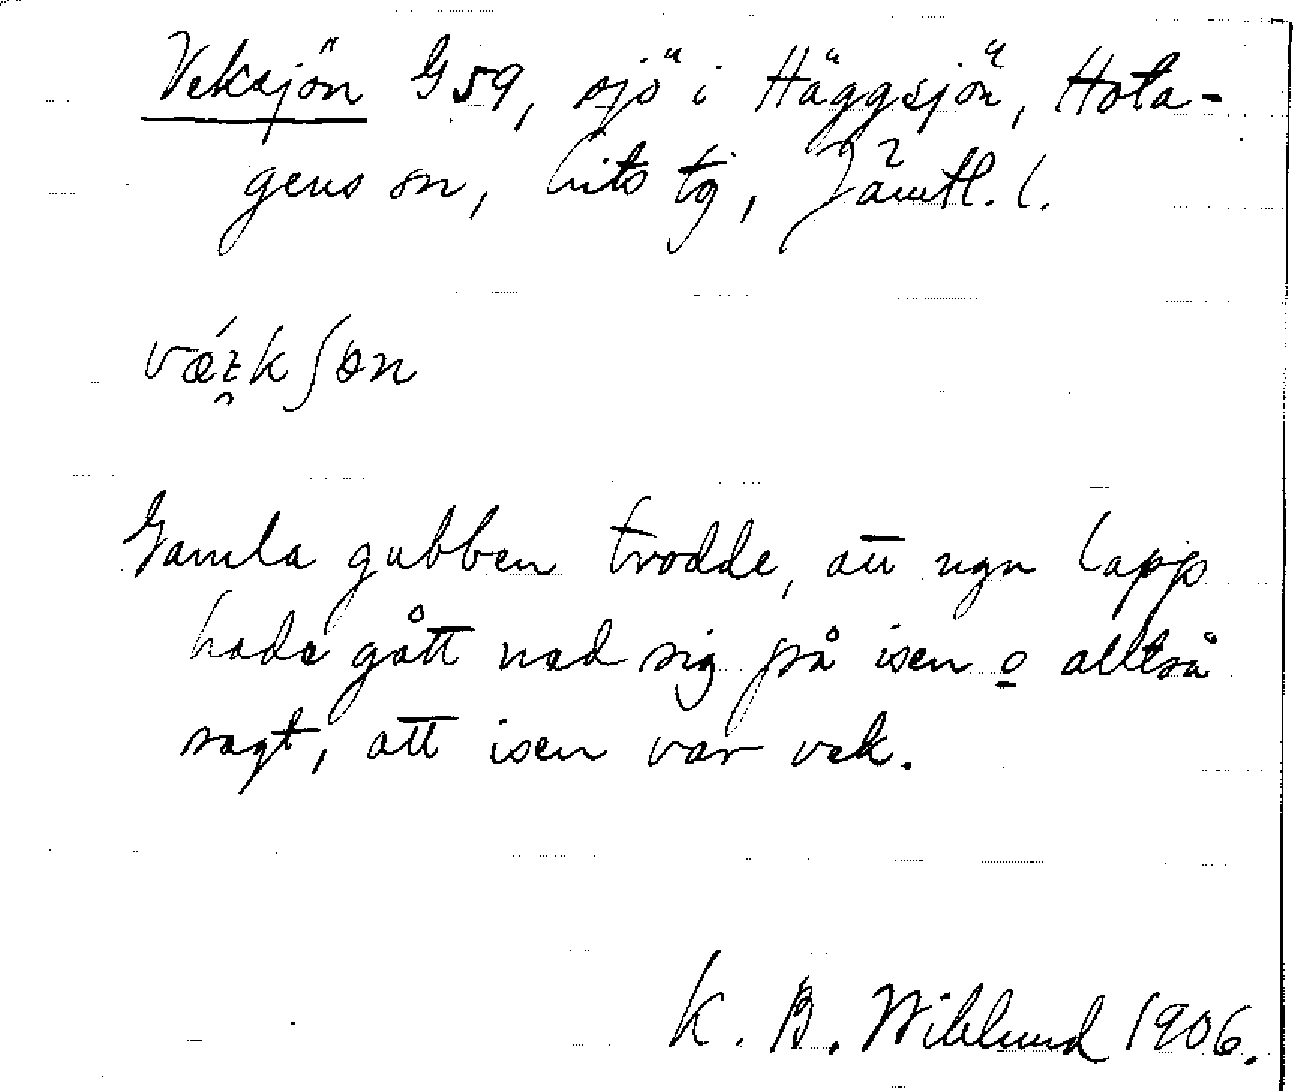 Veksjön G59, sjö i Häggsjön, Hota-
gens sn, Lits tg, Jämtl. l.
Gamla gubben trodde, att ngn lapp
hade gått ned sig på isen o alltså
sagt, att isen var vek.
K. B. Wiklund 1906.